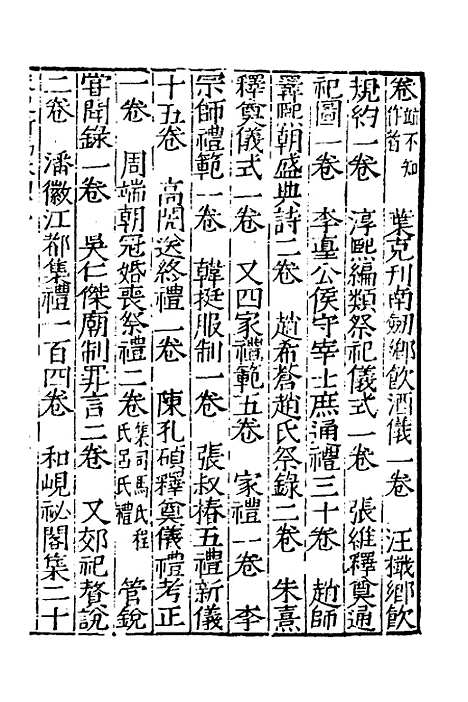 卷並不知作者 葉克刊南劒鄉飲酒儀一卷 汪檝鄉飲
規約一卷 淳熙編類祭祀儀式一卷 張維釋奠通
祀圖一卷 李𡌴公侯守宰士庶通禮三十卷 趙師
𢍰熙朝盛典詩二卷 趙希蒼趙氏祭錄二卷 朱熹
釋奠儀式一卷 又四家禮範五卷 家禮一卷 李
宗師禮範一卷 韓挺服制一卷 張叔椿五禮新儀
十五卷 高閌送終禮一卷 陳孔碩釋奠儀禮考正
一卷 周端朝冠婚喪祭禮二卷集司馬氏程氏呂氏禮 管銳
甞聞錄一卷 吳仁傑廟制罪言二卷 又郊祀贅說
二卷 潘徽江都集禮一百四卷 和峴祕閣集二十